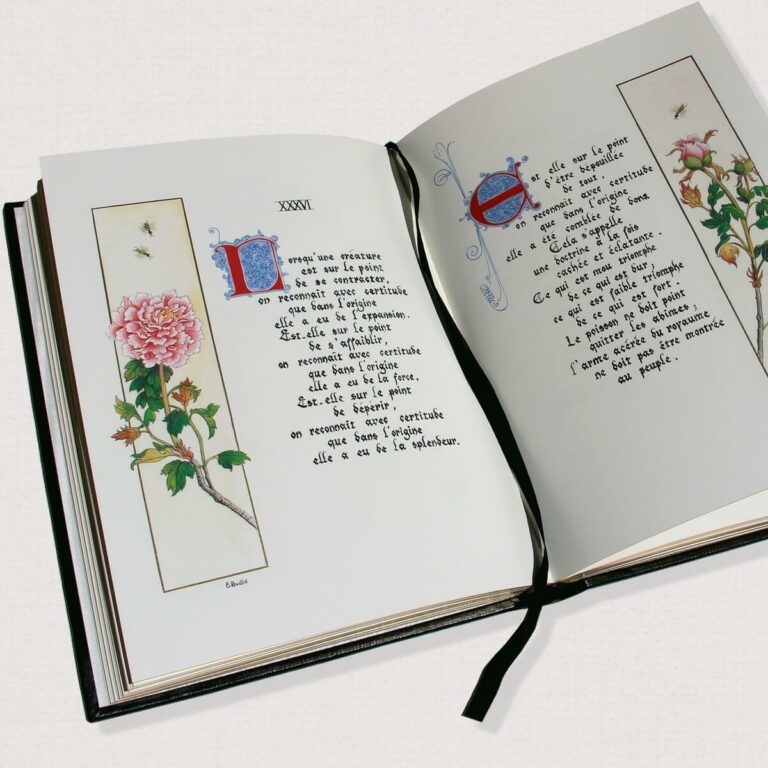 XXXVI
Lorsqu'une créature
est sur le point
de se contracter,
on reconnaît avec certitude
que dans l'origine
elle a eu de l'expansion.
Est.elle sur le point
de s'affaiblir,
on reconnaît avec certitude
que dans l'origine
elle a eu de la force.
Est.elle sur le point
de dépérir,
on reconnaît avec certitude
que dans l'origine
elle a eu de la splendeur.
Est elle sur le point
d'être dépouillée
de tout.
on reconnaît avec certitude
que dans l'origine
elle a été comblée de dons.
Cela s'appelle
une doctrine à la fois
cachée et éclatante.
Ce qui est mou triomphe
de ce qui est dur ;
ce qui est faible triomphe
de ce qui est fort.
Le poisson ne doit point
quitter les abîmes ;
l'arme acérée du royaume
ne doit pas être montrée
au peuple.